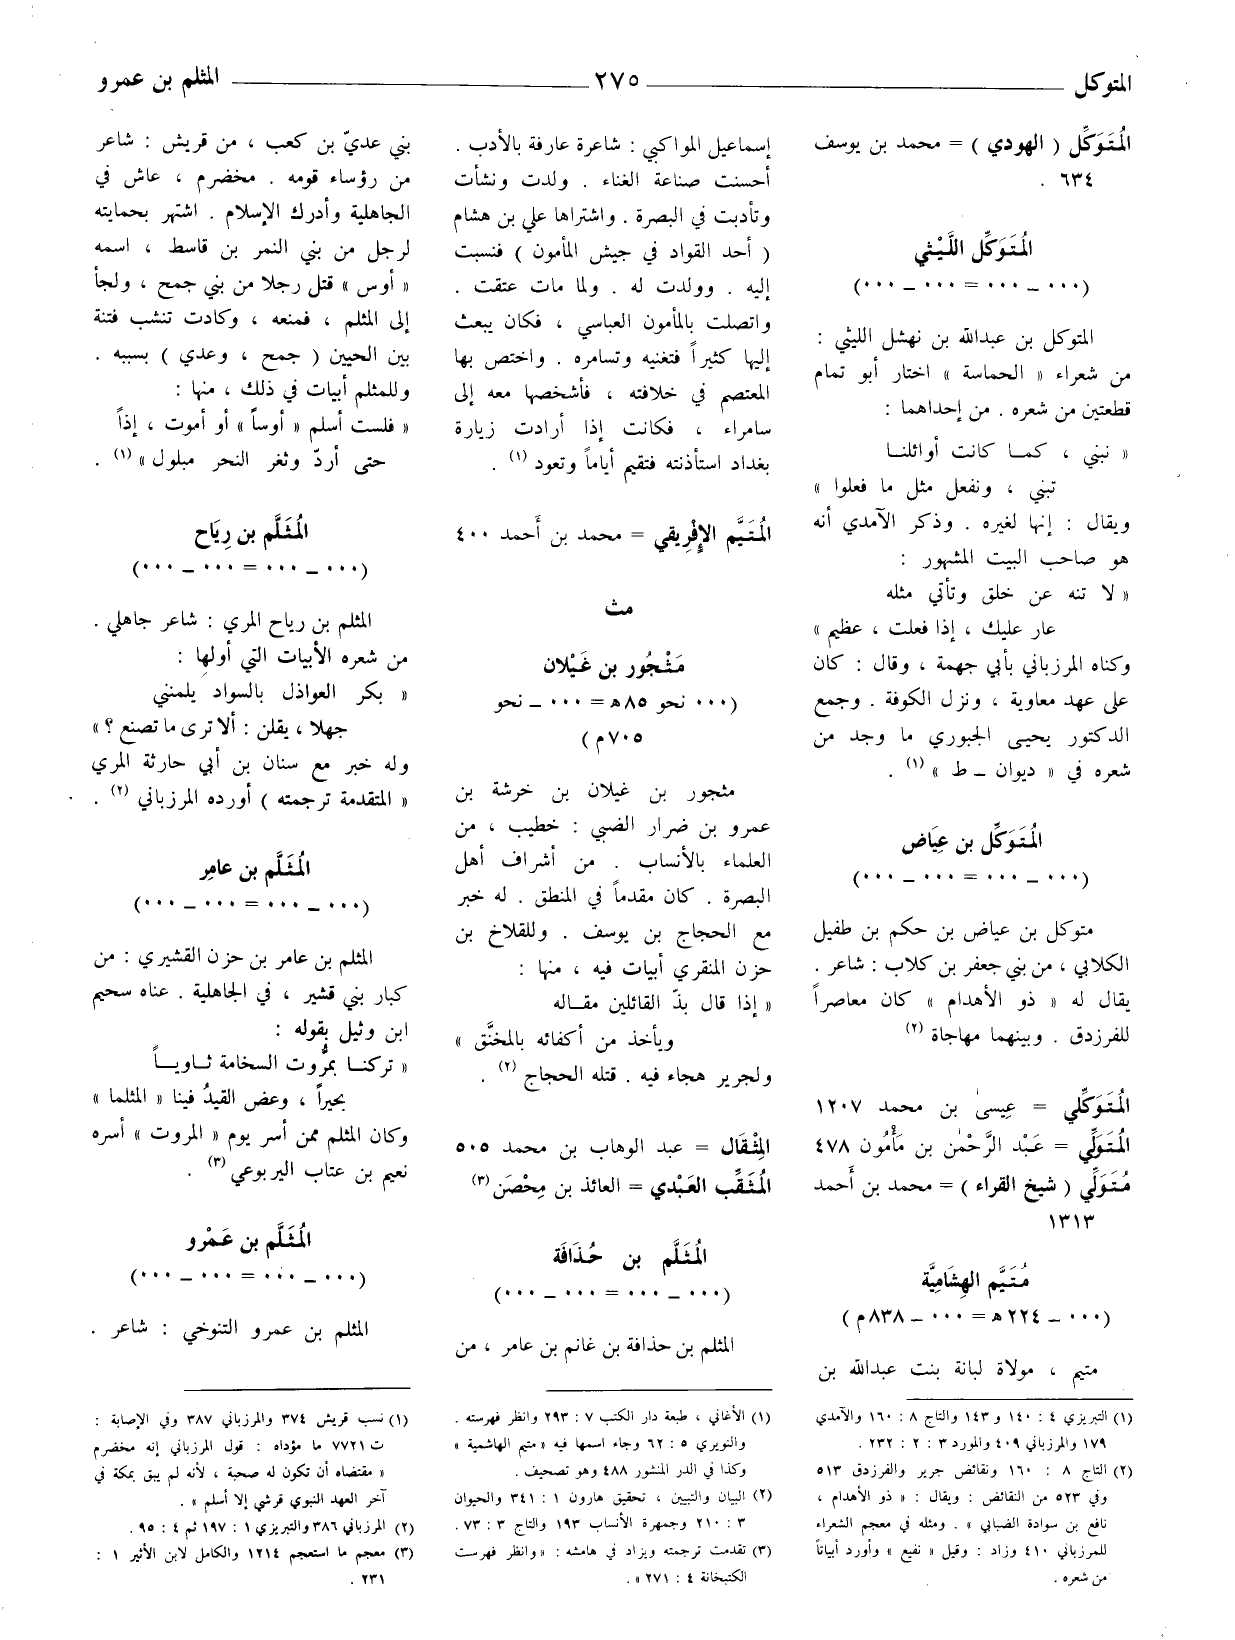 المتوكل
٢٧٥
المثلم بن عمرو
المُتَوَكِّل ( الهودي ) = محمد بن يوسف
٦٣٤ .
المُتَوَكِّل اللَّيْثي
(٠٠٠ ــ ٠٠٠ = ٠٠٠ ــ ٠٠٠)
المتوكل بن عبدالله بن نهشل الليثي :
من شعراء « الحماسة » اختار أبو تمام
قطعتين من شعره . من إحداهما :
« نبني ، كمــا كانت أوائلنــا
تبني ، ونفعل مثل ما فعلوا »
ويقال : إنها لغيره . وذكر الآمدي أنه
هو صاحب البيت المشهور :
« لا تنه عن خلق وتأتي مثله
عار عليك ، إذا فعلت ، عظيم »
وكناه المرزباني بأبي جهمة ، وقال : كان
على عهد معاوية ، ونزل الكوفة . وجمع
الدكتور يحيى الجبوري ما وجد من
شعره في « ديوان ــ ط » (١) .
المُتَوَكِّل بن عِيَاض
(٠٠٠ ــ ٠٠٠ = ٠٠٠ ــ ٠٠٠)
متوكل بن عياض بن حكم بن طفيل
الكلابي ، من بني جعفر بن كلاب : شاعر .
يقال له « ذو الأهدام » كان معاصراً
للفرزدق . وبينهما مهاجاة (٢)
المُتَوَكِّلي = عِيسىٰ بن محمد ١٢٠٧
المُتَوَلِّي = عَبْد الرَّحْمٰن بن مَأْمُون ٤٧٨
مُتَوَلِّي ( شيخ القراء ) = محمد بن أَحمد
١٣١٣
مُتَيَّم الهِشَامِيَّة
(٠٠٠ ــ ٢٢٤ ه = ٠٠٠ ــ ٨٣٨ م )
متيم ، مولاة لبانة بنت عبدالله بن
(١) التبريزي ٤ : ١٤٠ و ١٤٣ والتاج ٨ : ١٦٠ والآمدي
١٧٩ والمرزباني ٤٠٩ والمورد ٣ : ٢ : ٢٣٢ .
(٢) التاج ٨ : ١٦٠ ونقائض جرير والفرزدق ٥١٣
وفي ٥٢٣ من النقائض : ويقال : « ذو الأهدام ،
نافع بن سوادة الضبابي » . ومثله في معجم الشعراء
للمرزباني ٤١٠ وزاد : وقيل « نفيع » وأورد أبياتاً
من شعره .
إسماعيل المواكبي : شاعرة عارفة بالأدب .
أحسنت صناعة الغناء . ولدت ونشأت
وتأدبت في البصرة . واشتراها علي بن هشام
( أحد القواد في جيش المأمون ) فنسبت
إليه . وولدت له . ولما مات عتقت .
واتصلت بالمأمون العباسي ، فكان يبعث
إليها كثيراً فتغنيه وتسامره . واختص بها
المعتصم في خلافته ، فأشخصها معه إلى
سامراء ، فكانت إذا أرادت زيارة
بغداد استأذنته فتقيم أياماً وتعود (١) .
المُتَيَّم الإفْرِيقي = محمد بن أَحمد ٤٠٠
مث
مَثْجُور بن غَيْلان
(٠٠٠ نحو ٨٥ ه = ٠٠٠ ــ نحو
٧٠٥ م )
مثجور بن غيلان بن خرشة بن
عمرو بن ضرار الضبي : خطيب ، من
العلماء بالأنساب . من أشراف أهل
البصرة . كان مقدماً في المنطق . له خبر
مع الحجاج بن يوسف . وللقلاخ بن
حزن المنقري أبيات فيه ، منها :
« إذا قال بذّ القائلين مقــاله
ويأخذ من أكفائه بالمخنَّق »
ولجرير هجاء فيه . قتله الحجاج (٢) .
المِثْقَال = عبد الوهاب بن محمد ٥٠٥
المُثَقِّب العَبْدي = العائذ بن مِحْصَن (٣)
المُثَلَّم بن حُذَافَة
(٠٠٠ ــ ٠٠٠ = ٠٠٠ ــ ٠٠٠)
المثلم بن حذافة بن غانم بن عامر ، من
(١) الأغاني ، طبعة دار الكتب ٧ : ٢٩٣ وانظر فهرسته .
والنويري ٥ : ٦٢ وجاء اسمها فيه « متيم الهاشمية »
وكذا في الدر المنشور ٤٨٨ وهو تصحيف .
(٢) البيان والتبيين ، تحقيق هارون ١ : ٣٤١ والحيوان
٣ : ٢١٠ وجمهرة الأنساب ١٩٣ والتاج ٣ : ٧٣ .
(٣) تقدمت ترجمته ويزاد في هامشه : « وانظر فهرست
الكتبخانة ٤ : ٢٧١ » .
بني عديّ بن كعب ، من قريش : شاعر
من رؤساء قومه . مخضرم ، عاش في
الجاهلية وأدرك الإسلام . اشتهر بحمايته
لرجل من بني النمر بن قاسط ، اسمه
« أوس » قتل رجلا من بني جمح ، ولجأ
إلى المثلم ، فمنعه ، وكادت تنشب فتنة
بين الحيين ( جمح ، وعدي ) بسببه .
وللمثلم أبيات في ذلك ، منها :
« فلست أسلم « أوساً » أو أموت ، إذاً
حتى أردّ وثغر النحر مبلول » (١) .
المُثَلَّم بن رِيَاح
(٠٠٠ ــ ٠٠٠ = ٠٠٠ ــ ٠٠٠)
المثلم بن رياح المري : شاعر جاهلي .
من شعره الأبيات التي أولها :
« بكر العواذل بالسواد يلمنني
جهلا ، يقلن : ألا ترى ما تصنع ؟ »
وله خبر مع سنان بن أبي حارثة المري
« المتقدمة ترجمته ) أورده المرزباني (٢) .
المُثَلَّم بن عامِر
(٠٠٠ ــ ٠٠٠ = ٠٠٠ ــ ٠٠٠)
المثلم بن عامر بن حزن القشيري : من
كبار بني قشير ، في الجاهلية . عناه سحيم
ابن وثيل بقوله :
« تركنــا بمرُّوت السخامة ثــاويــاً
بحيراً ، وعض القيدُ فينا « المثلما »
وكان المثلم ممن أسر يوم « المروت » أسره
نعيم بن عتاب اليربوعي (٣) .
المُثَلَّم بن عَمْرو
(٠٠٠ ــ ٠٠٠ = ٠٠٠ ــ ٠٠٠)
المثلم بن عمرو التنوخي : شاعر .
(١) نسب قريش ٣٧٤ والمرزباني ٣٨٧ وفي الإصابة :
ت ٧٧٢١ ما مؤداه : قول المرزباني إنه مخضرم
« مقتضاه أن تكون له صحبة ، لأنه لم يبق بمكة في
آخر العهد النبوي قرشي إلا أسلم » .
(٢) المرزباني ٣٨٦ والتبريزي ١ : ١٩٧ ثم ٤ : ٩٥ .
(٣) معجم ما استعجم ١٢١٤ والكامل لابن الأثير ١ :
٢٣١ .